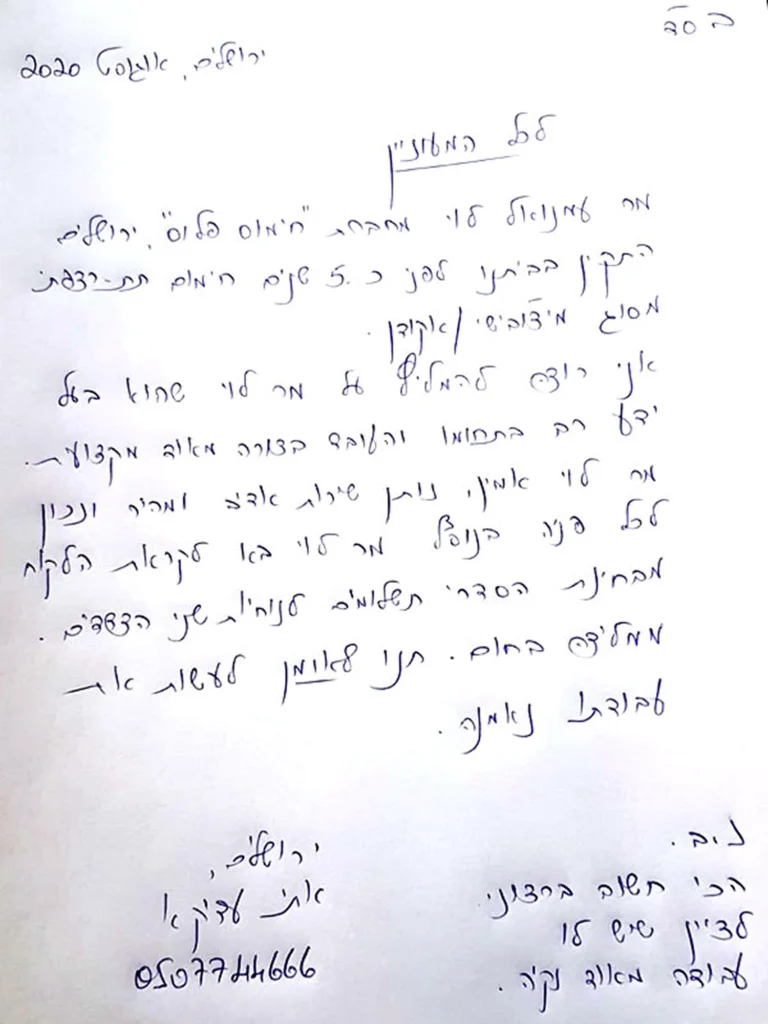 בסד
ירושלים, אוגוסט 2020
לכל המעוניין
מר עמנואל לוי מחברת "חימום פלוס", ירושלים
התקין בביתנו לפני כ 5 שנים חימום תת-רצפתי
מסוג מיצובישי/אקודן.
אני רוצה להמליץ על מר לוי שהוא בעל
ידע רב בתחומו והעובד בצורה מאוד מקצועית.
מר לוי אמין, נותן שירות אדיב ומהיר ונכון
לכל פניה בנוסף מר לוי בא לקראת הלקוח
מבחינת הסדרי תשלומים לנוחיות שני הצדדים.
ממליצה בחום. תנו לאומן לעשות את
עבודתו נאמנה.
נ.ב.
הכי חשוב ברצוני
לציין שיש לו
עבודה מאוד נקיה.
ירושלים,
אתי
0507744666